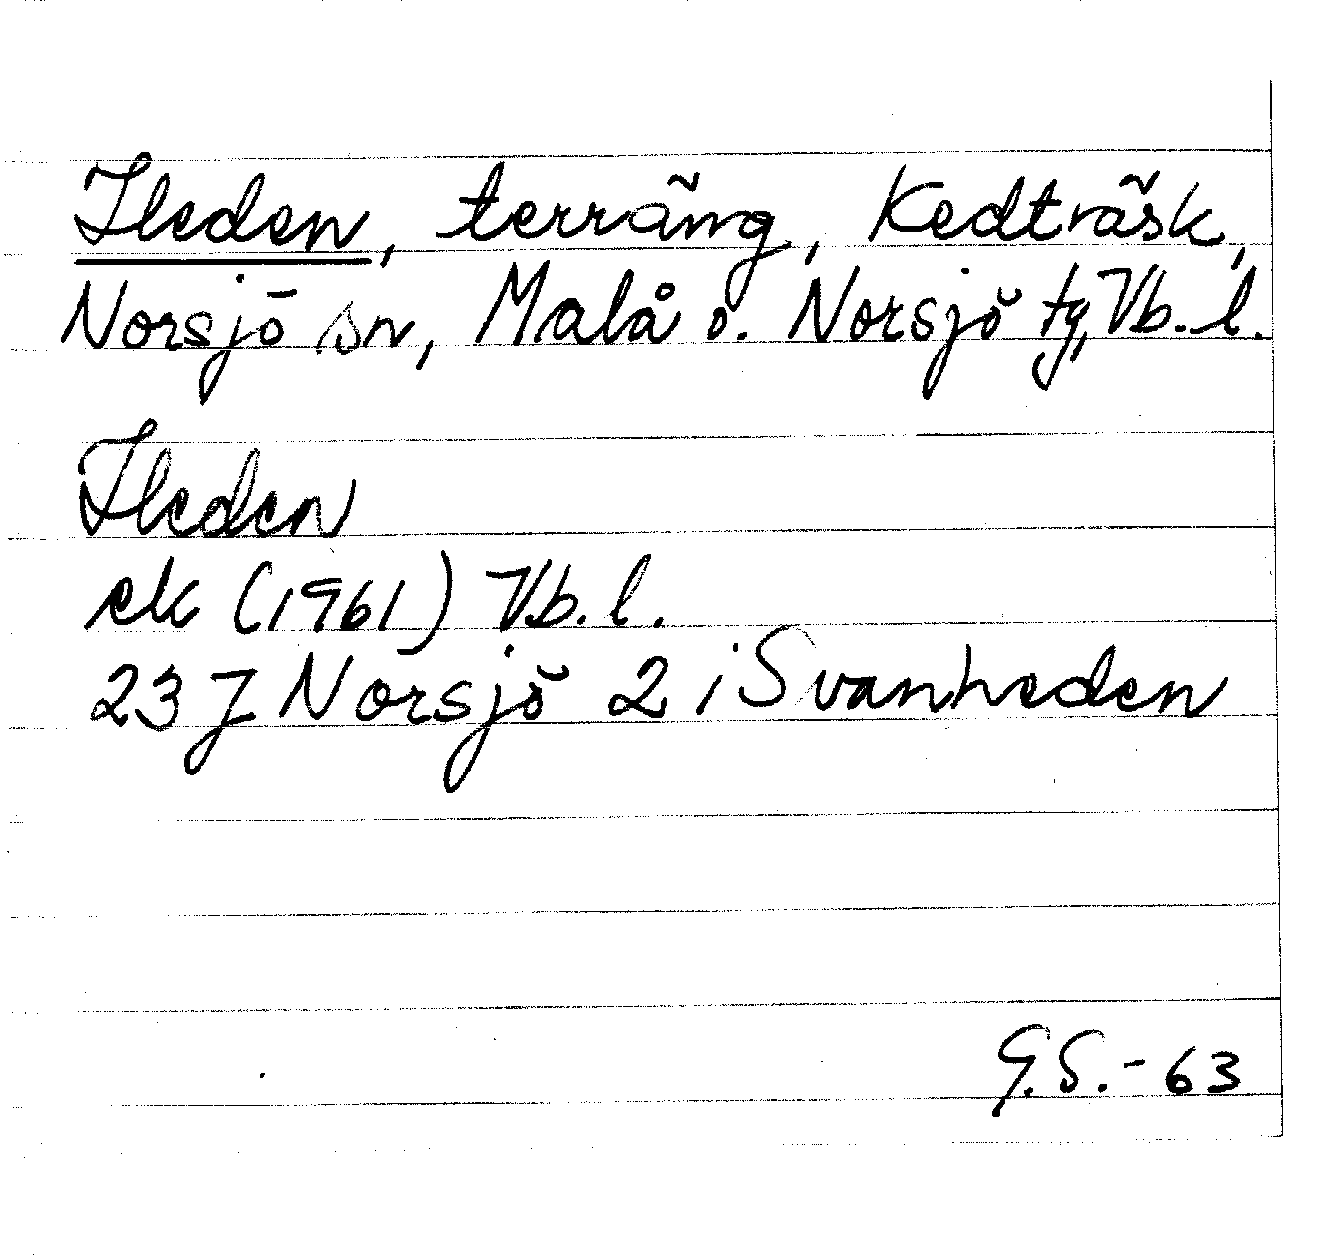 Ileden, terräng, Kedträsk,
Norsjö sn, Malå o. Norsjö tg, Vb. l.
Ileden
ek (1961) Vb. l.
23 J Norsjö 2 i Svanheden
G.S. - 63